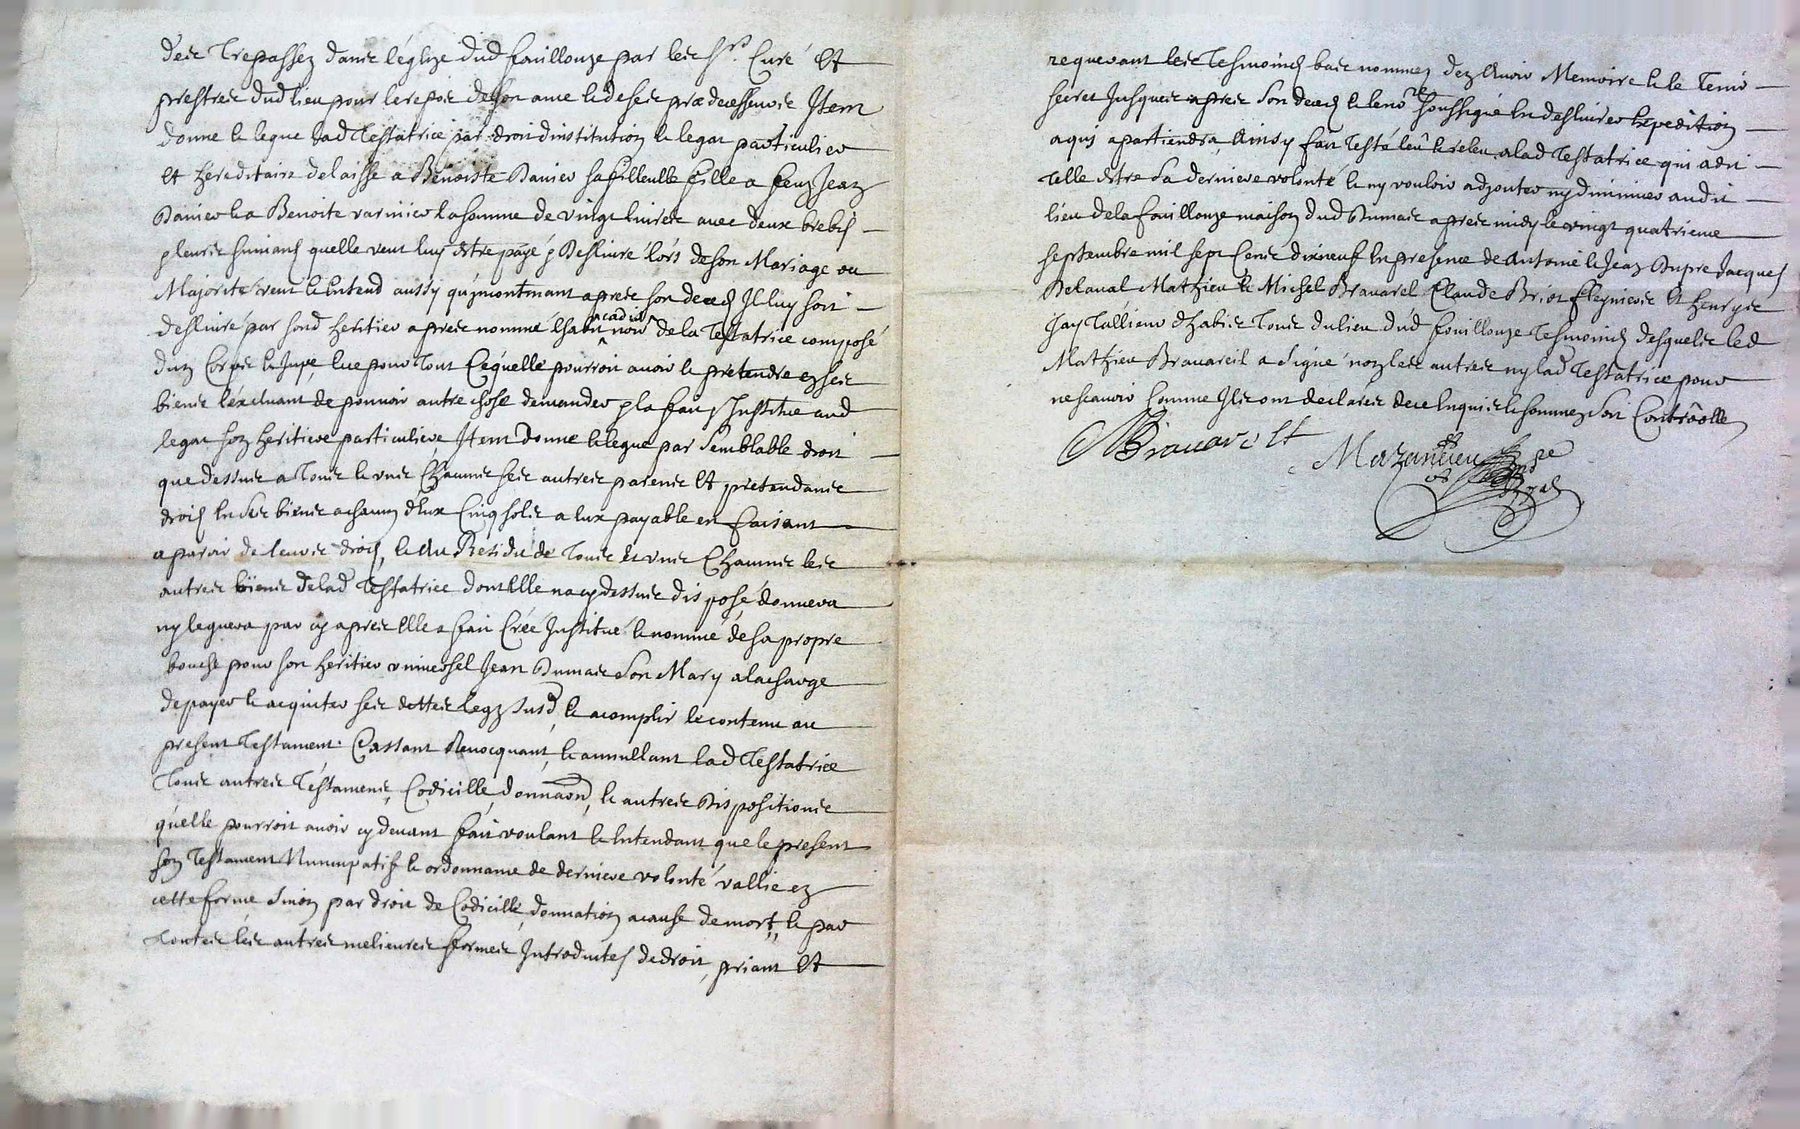 des Trepassez dans léglize dud fouillouze par les srs. Curé et
prestres dud lieu pour le repos de son ame et de ses prædecesseurs Item
donne et legue lad Testatrice par droit dinstitution et legat particulier
et hereditaire delaisse a Benoiste Danier sa filleulle fille a feu Jean
Danier et a Benoite varinier la somme de vingt livres avec deux brebis
quelle veut luy estre payé et deslivré lors de son Mariage ou
Majorité veut et entend aussy qu'incontinant apres son deces Il luy soit
deslivré par sond heritier apres nommé lhabit noir de la Testatrice composé
dun Corps et Jupe, que pour Tout Ce quelle pourroit avoir et pretendre en ses
biens l'excluant de pouvoir autre chose demander la fait Institue aud
legat son heritiere particuliere Item donne et legue par semblable droit
que dessus a Tous et uns Chacuns ses autres parens et pretendans
droits en ses biens a chacun d'eux Cinq sols a eux payable en faisant
aparoir de leurs droits, et Au Residu de Tous et uns Chacuns les
autres biens de lad Testatrice dont Elle na cy dessus disposé, donnera
ny leguera par cy apres Elle a fait Créé Institué et nommé de sa propre
bouche pour son heritier universel Jean Dumas son Mary a la charge
de payer et acquiter ses dettes legz susd, et acomplir le contenu au
present Testament. Cassant Revocquant, et annullant lad Testatrice
Tous autres Testamens, Codicille, donnaon, et autres Dispositions
quelle pourroit avoir cy devant fait voulant et Entendant que le present
son Testament Nuncupatif et ordonnance de derniere volonté vallie en
cette forme sinon par droit de Codicille, donnation a cause de mort, et par
toutes les autres melieures formes Introduites de droit, priant Et
requerant les Tesmoins bas nommez dez Avoir Memoire et le Tenir
secret Jusques apres son deces et le nore soussigné En deslivrer Expedition
a qui apartiendra, Ainsy fait Testé leu et releu a lad Testatrice qui a dit
Telle estre sa derniere volonté et ny vouloir adjouter ny diminuer audit
lieu de la fouillouze maison dud Dumas apres midy le vingt quatrieme
septembre mil sept Cens dixneuf En presence de Antoine et Jean Dupre Jacques
Delaval Mathieu et Michel Bravarel Claude Briot et henry
Jay Tallieur dhabis Tous du lieu dud fouillouze Tesmoins desquels led
Mathieu Bravareil a signé non les autres ny lad Testatrice pour
ne scavoir Comme Ils ont declarés de ce Enquis et sommez soit Controolle
MBravarelt
Mazancieu nre Royal